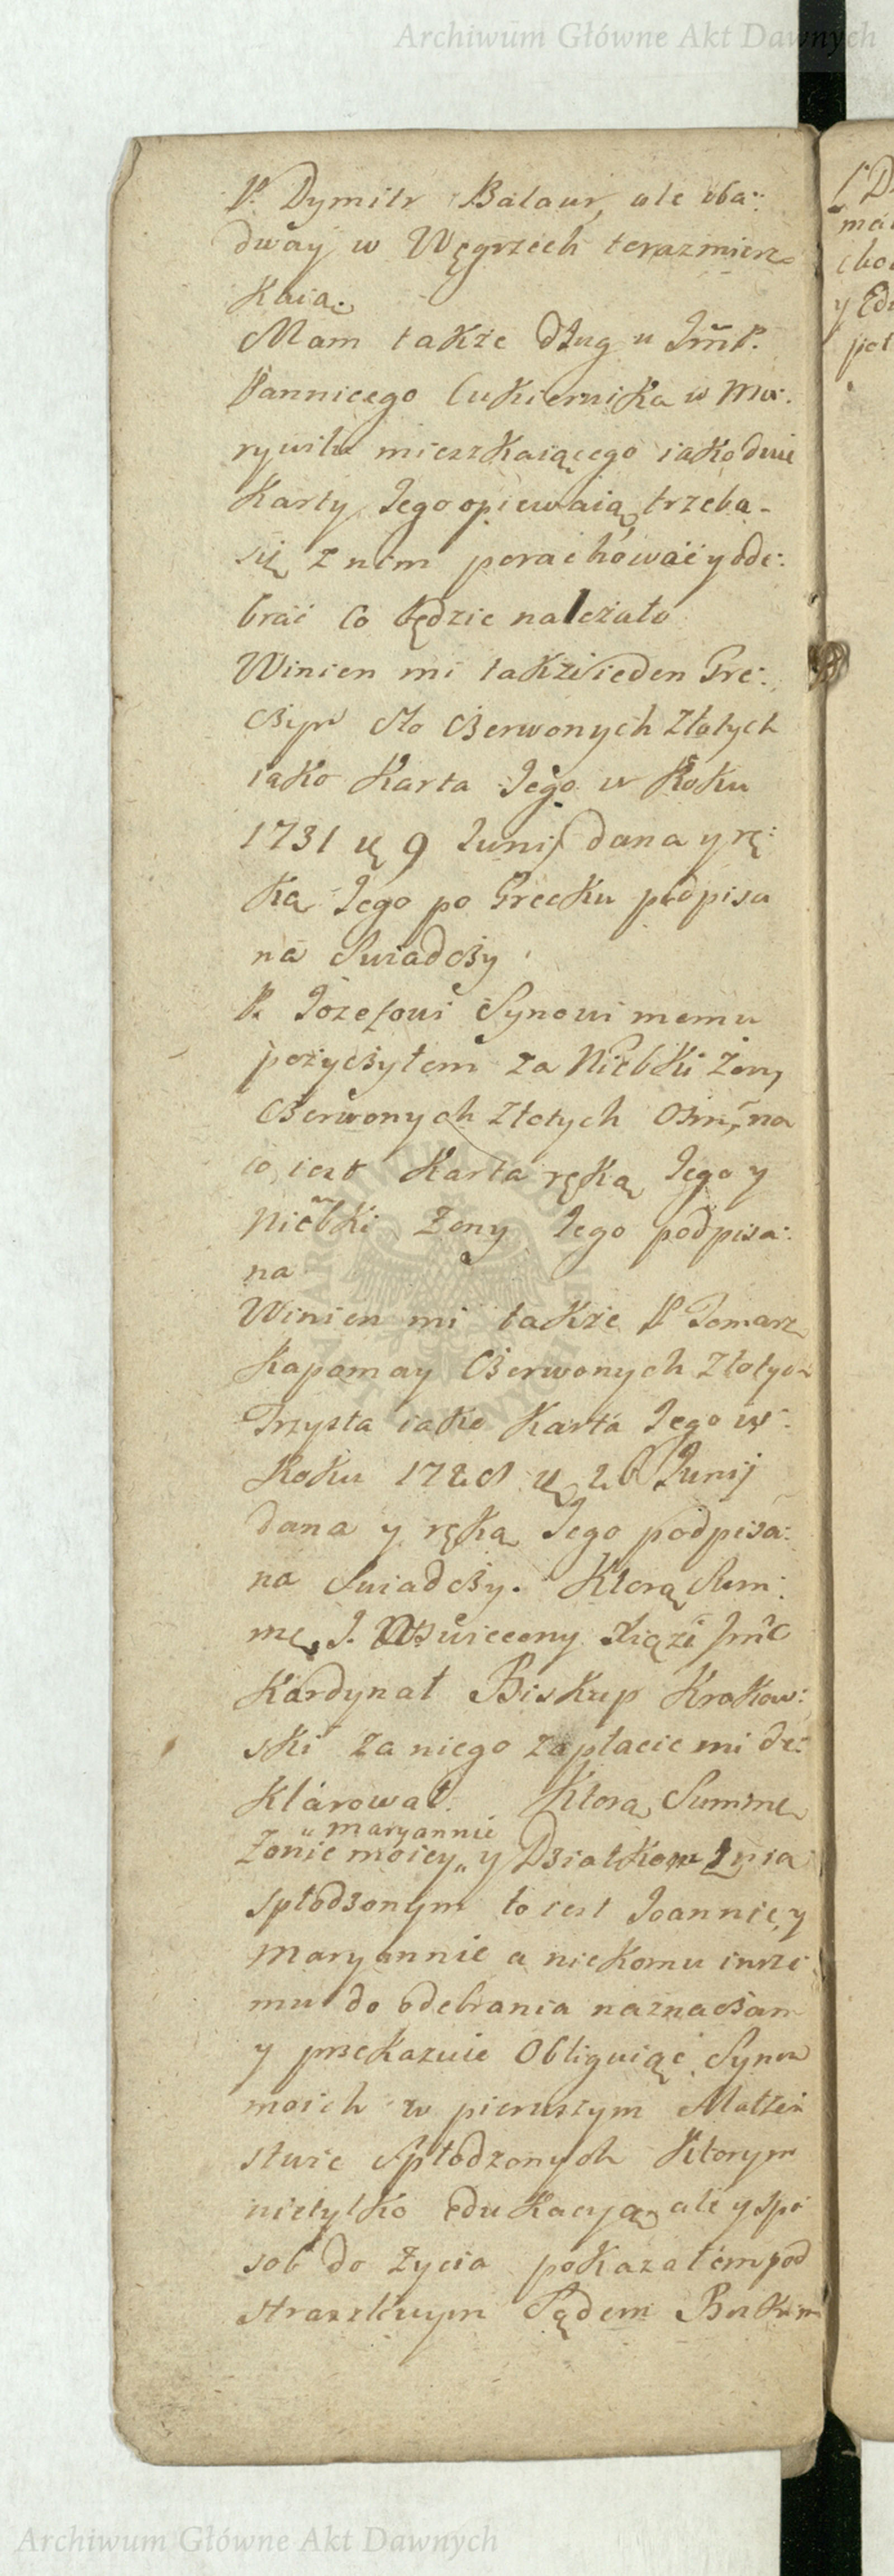 Archiwum Główne Akt Dawnych
P. Dymitr Bataur, ale oba:
dway w Węgrzech teraz miesz=
Kaią.
Mam takze dług u Jm̃P.
Pannicego Cukiernika w Ma:
rywilu mieszkaiącego iako dwie
Karty Jego opiewaią, trzeba-
się z nim porachować y ode:
brać co będzie należało
Winien mi takze ieden Gre:
czyn Sto Czerwonych Złotych
iako Karta Jego w Roku
1731 ą 9 Junij dana y rę:
Ką Jego po Grecku podpisa
na Swiadczy.
P. Jozefowi Synowi memu
pozyczyłem za Niebki Zony
Czerwonych Złotych Osm, na
co iest Karta ręką Jego y
Niebki Zony Jego podpisa:
na
Winien mi takze P Tomasz
Kapamay Czerwonych Złotych
Trzysta iako Karta Jego w:
Roku 26 Junij
dana y ręką Jego podpisa:
na Swiadczy. Ktorą Sum:
mę, J. Oswiecony Xiąze Jmć
Kardynał Biskup Krakow:
ski za niego zapłacic mi de:
Klarował. Ktorą Summę
Maryannie
Zonie moiey y Dziatkom z nią
spłodzonym to iest Joannie, y
Maryannie a niekomu insze
mu do odebrania naznaczam
y przekazuie Obliguiąc Synow
moich w pierwszym Małżeń
stwie Spłodzonych Ktorym
nietylko Edukacyą, ale y spo
sob do Zycia pokazałem pod
straszliwym Sądem Boskim
Archiwum Główne Akt Dawnych